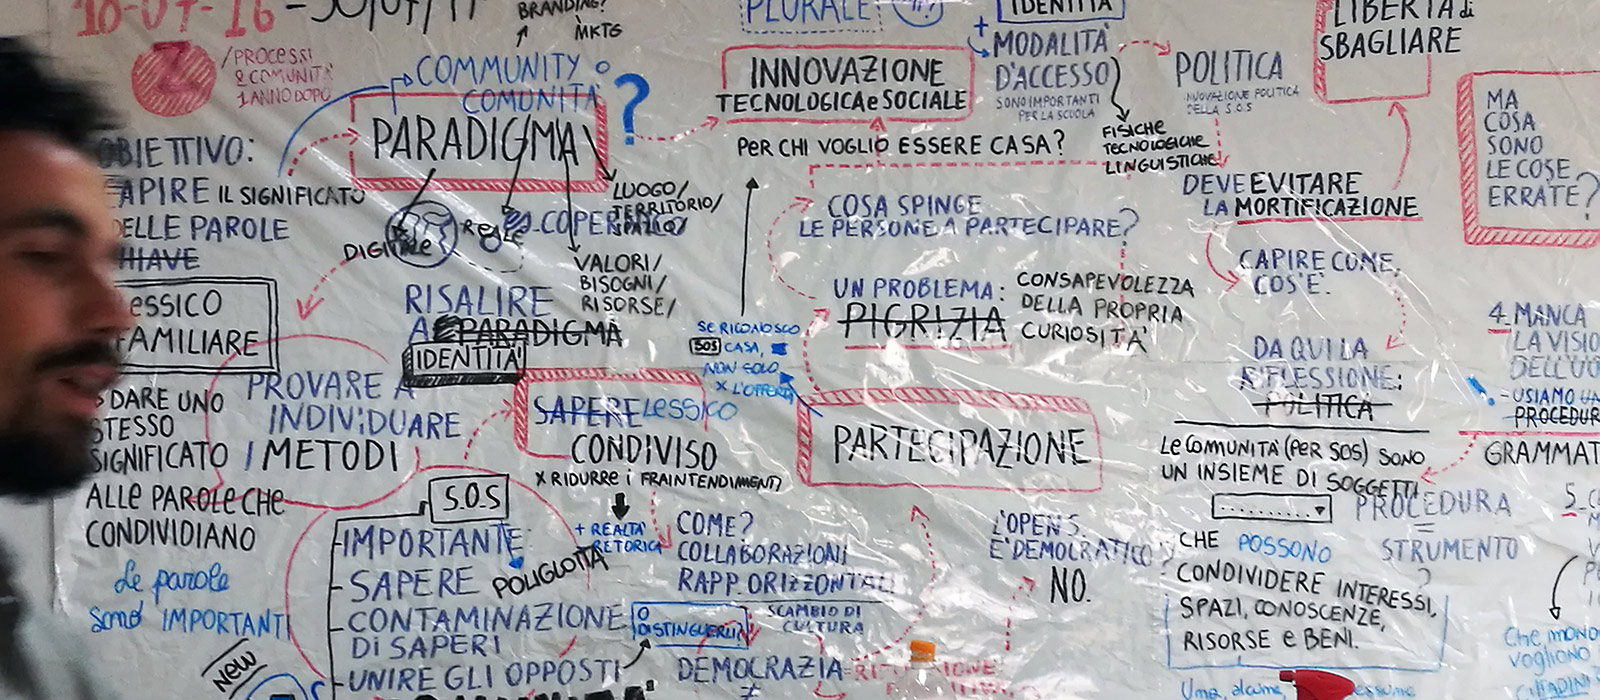 18-07-16
BRANDING?
MKTG
/PROCESSI
& COMUNITA'
1 ANNO DOPO
COMMUNITY O
COMUNITA'
?
PARADIGMA
OBIETTIVO:
CAPIRE IL SIGNIFICATO
DELLE PAROLE
LESSICO
FAMILIARE
→ DARE UNO
STESSO
SIGNIFICATO
ALLE PAROLE CHE
CONDIVIDIANO
Le parole
sono IMPORTANTI
NEW
DIGITALE
REALE
COPERNICO
LUOGO/
TERRITORIO/
VALORI/
BISOGNI/
RISORSE/
RISALIRE
A PARADIGMA
IDENTITA'
PROVARE A
INDIVIDUARE
I METODI
SAPERE LESSICO
CONDIVISO
X RIDURRE i FRAINTENDIMENTI
+ REALTA'
RETORICA
S.O.S
-IMPORTANTE:
-SAPERE POLIGLOTTA
-CONTAMINAZIONE
DI SAPERI
-UNIRE GLI OPPOSTI
O
DISTINGUERLI?
COME?
COLLABORAZIONI
RAPP. ORIZZONTALI
SCAMBIO DI
CULTURA
DEMOCRAZIA
≠
PLURALE
IDENTITA
INNOVAZIONE
TECNOLOGICA e SOCIALE
PER CHI VOGLIO ESSERE CASA?
+ MODALITA'
D'ACCESSO
SONO IMPORTANTI
PER LA SCUOLA
FISICHE
TECNOLOGICHE
LINGUISTICHE
COSA SPINGE
LE PERSONE A PARTECIPARE?
UN PROBLEMA:
PIGRIZIA
CONSAPEVOLEZZA
DELLA PROPRIA
CURIOSITA'
SE RICONOSCO
SOS CASA,
NON SOLO
X L'OFFERTA
PARTECIPAZIONE
L'OPEN S.
E' DEMOCRATICO
NO.
POLITICA
INNOVAZIONE POLITICA
DELLA S.O.S
LIBERTA di
SBAGLIARE
DEVE EVITARE
LA MORTIFICAZIONE
CAPIRE COME,
COS'E'.
DA QUI LA
RIFLESSIONE:
POLITICA
LE COMUNITA' (PER SOS) SONO
UN INSIEME DI SOGGETTI
CHE POSSONO
CONDIVIDERE INTERESSI,
SPAZI, CONOSCENZE,
RISORSE e BENI.
PROCEDURA
=
STRUMENTO
?
MA
COSA
SONO
LE COSE
ERRATE?
4. MANCA
LA VISIO
DELL'UO
- USIAMO UN
PROCEDUR
GRAMMAT
5.
Che mondo
vogliono